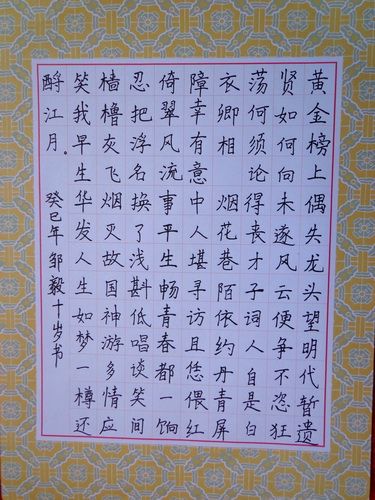 黄金榜上偶失龙头望明代暂遗
贤如何向未遂风云便争不恣狂
荡何须论得丧才子词人自是白
衣卿相 烟花巷陌依约丹青屏
障幸有意中人堪寻访且恁偎红
倚翠风流事平生畅青春都一饷
忍把浮名换了浅斟低唱谈笑间
樯橹灰飞烟灭故国神游多情应
笑我早生华发人生如梦一樽还
酹江月。 癸巳年邹毅十岁书